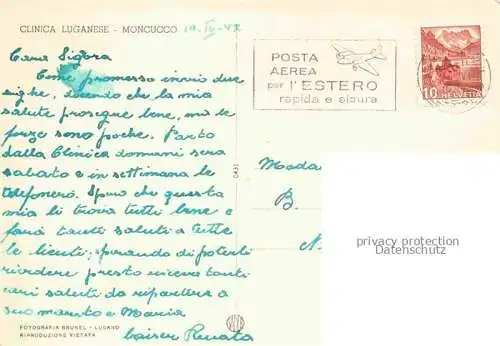 CLINICA LUGANESE - MONCUCCO
Cara Sigora
Come promesso invio due
righe, dicendo che la mia
salute prosegue bene, ma le
forze sono poche. Parto
dalla Clinica domani sera
sabato e in settimana le
telefonerò. Spero che questa
mia li trova tutti bene e
farà tanti saluti a tutte
le clienti; sperando di poterli
rivedere presto riceve tanti
cari saluti da ripartire a
suo marito e Maria
Renata
FOTOGRAFIA BRUNEL - LUGANO
RIPRODUZIONE VIETATA
0431
POSTA
AEREA
per l'ESTERO
rapida e sicura
10 HELVETIA
Moda
B.
N.
privacy protection
Datenschutz